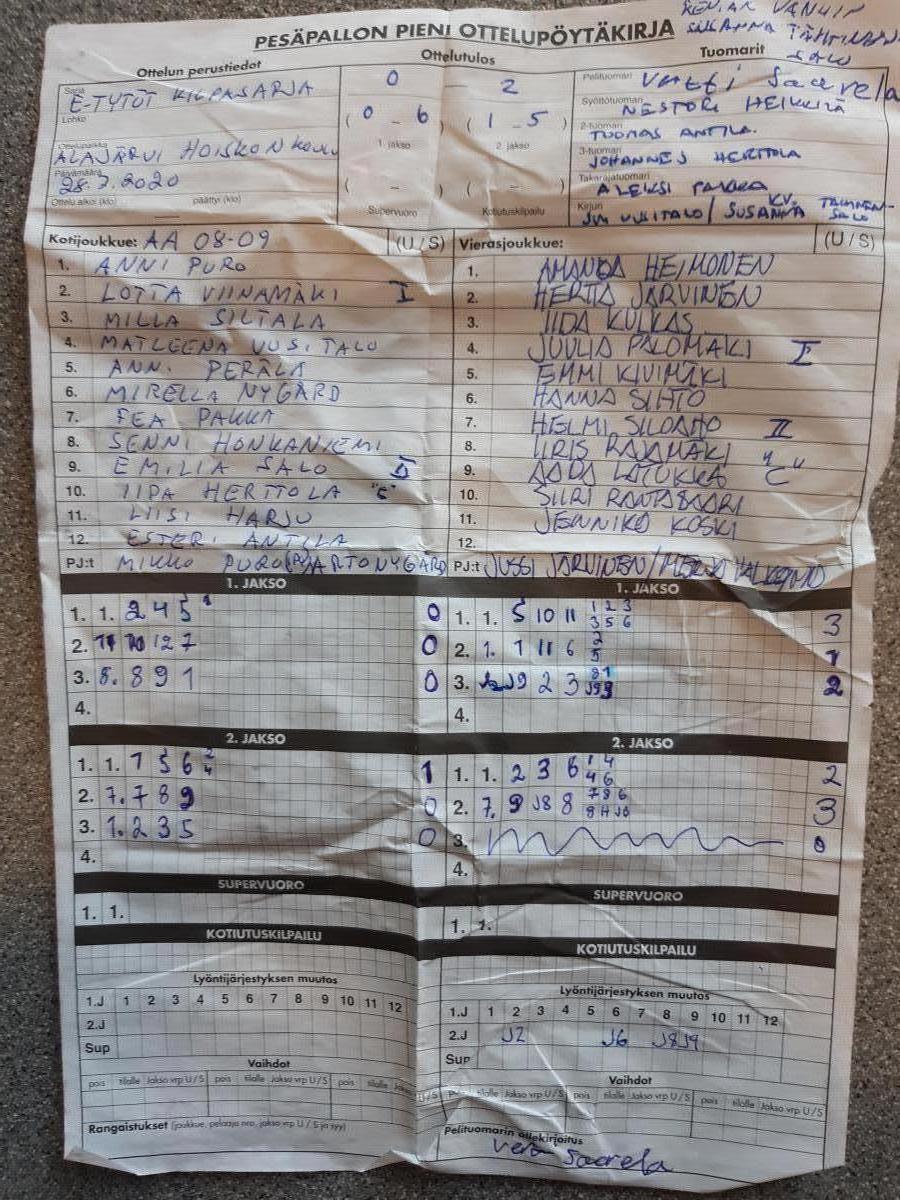 VANHIN
PESÄPALLON PIENI OTTELUPÖYTÄKIRJA SUSANNA
SALO
Ottelun perustiedot
Sarja
E-TYTÖT KILPASARJA
Lohko
Ottelupaikka
ALAJÄRVI HOISKON
Päivämäärä
28.7.2020
Ottelu alkoi (klo) päättyi (klo)
Ottelutulos
0 - 2
( 0 - 6 ) ( 1 - 5 )
1. jakso 2. jakso
( - ) ( - )
Supervuoro Kotiutuskilpailu
Tuomarit
Pelituomari
Saarela
Syöttötuomari
NESTORI HEIKKILÄ
2-tuomari
TUOMAS ANTILA
3-tuomari
JOHANNES HERTTOLA
Takarajatuomari
ALEKSI PAKKA
Kirjuri
UUSITALO / SUSANNA
SALO
Kotijoukkue: AA 08-09 (U / S)
1. ANNI PURO
2. LOTTA VIINAMÄKI I
3. MILLA SILTALA
4. MATLEENA UUSITALO
5. ANNI PERÄLÄ
6. MIRELLA NYGÅRD
7. FEA PAKKA
8. SENNI HONKANIEMI
9. EMILIA SALO II
10. IIDA HERTTOLA "C"
11. LIISI HARJU
12. ESTERI ANTILA
PJ:t MIKKO PURO ARTO NYGÅRD
Vierasjoukkue: (U / S)
1. AMANDA HEIMONEN
2. HERTTA JÄRVINEN
3. IIDA KULKAS
4. JUULIA PALOMÄKI I
5. EMMI KIVIMÄKI
6. HANNA SIHTO
7. HELMI SILOAHO II
8. IIRIS RAJAMÄKI
9. AADA LATUKKA "C"
10. SIIRI RANTASAARI
11. JENNIKA KOSKI
12.
PJ:t JUSSI JÄRVINEN /
1. JAKSO
1. 1. 2 4 5 0
2. 12 7 0
3. 8. 8 9 1 0
4.
2. JAKSO
1. 1. 1 5 6 2 4 1
2. 7. 7 8 9 0
3. 1. 2 3 5 0
4.
SUPERVUORO
1. 1.
KOTIUTUSKILPAILU
Lyöntijärjestyksen muutos
1.J 1 2 3 4 5 6 7 8 9 10 11 12
2.J
Sup
Vaihdot
pois tilalle Jakso vrp U / S pois tilalle Jakso vrp U / S pois tilalle
Rangaistukset (joukkue, pelaaja nro, jakso vrp U / S ja syy)
1. JAKSO
1. 1. 5 10 11 1 2 3 3
3 5 6
2. 1. 1 11 6 2 1
5
3. J9 2 3 2
4.
2. JAKSO
1. 1. 2 3 6 1 4 2
4 6
2. 7. 9 J8 8 7 8 6 3
3. 0
4.
SUPERVUORO
1. 1.
KOTIUTUSKILPAILU
Lyöntijärjestyksen muutos
1.J 1 2 3 4 5 6 7 8 9 10 11 12
2.J J2 J6 J8 J9
Sup
Vaihdot
pois tilalle Jakso vrp U / S pois tilalle Jakso vrp U / S pois tilalle Jakso vrp U / S
Pelituomarin allekirjoitus
Saarela